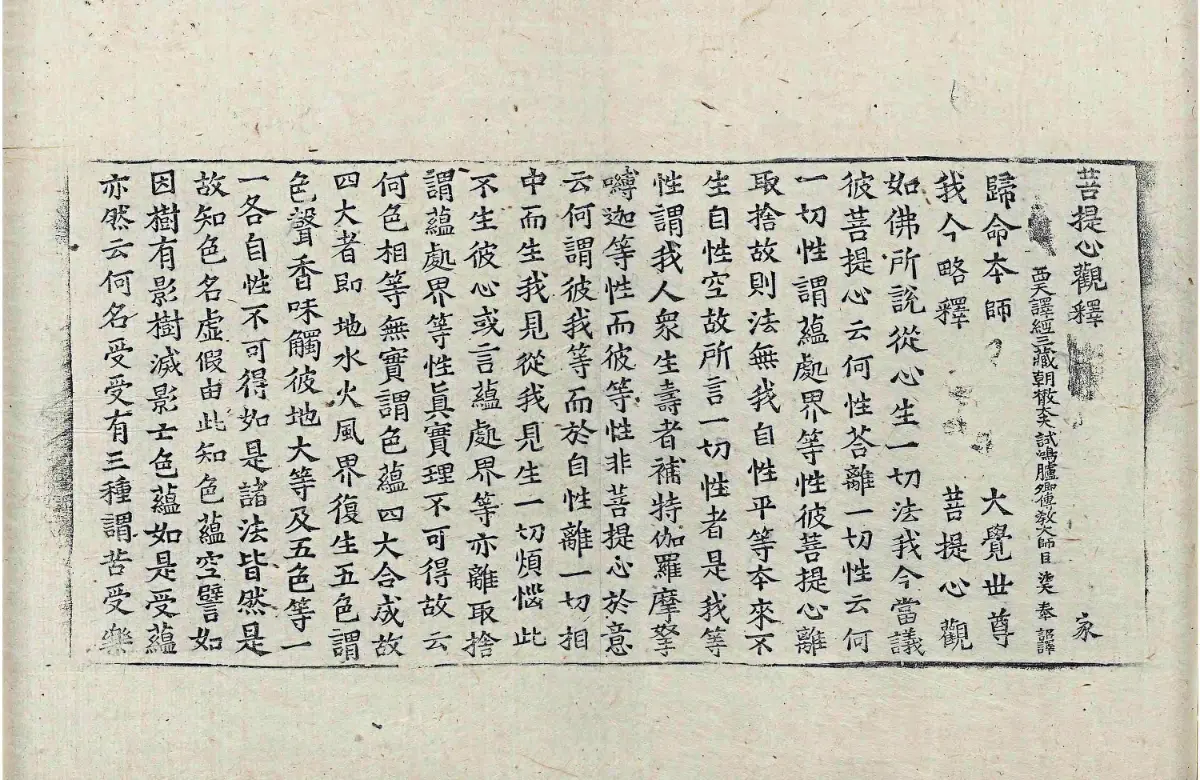 菩提心觀釋 家
西天譯經三藏朝散大夫試鴻臚卿傳教大師臣 法天 奉 詔譯
歸命本師 大覺世尊
我今略釋 菩提心觀
如佛所說從心生一切法我今當議
彼菩提心云何性荅離一切性云何
一切性謂蘊處界等性彼菩提心離
取捨故則法無我自性平等本來不
生自性空故所言一切性者是我等
性謂我人衆生壽者補特伽羅摩拏
嚩迦等性而彼等性非菩提心於意
云何謂彼我等而於自性離一切相
中而生我見從我見生一切煩惱此
不生彼心或言蘊處界等亦離取捨
謂蘊處界等性眞實理不可得故云
何色相等無實謂色蘊四大合成故
四大者即地水火風界復生五色謂
色聲香味觸彼地大等及五色等一
一各自性不可得如是諸法皆然是
故知色名虛假由此知色蘊空譬如
因樹有影樹滅影亡色蘊如是受蘊
亦然云何名受受有三種謂苦受樂